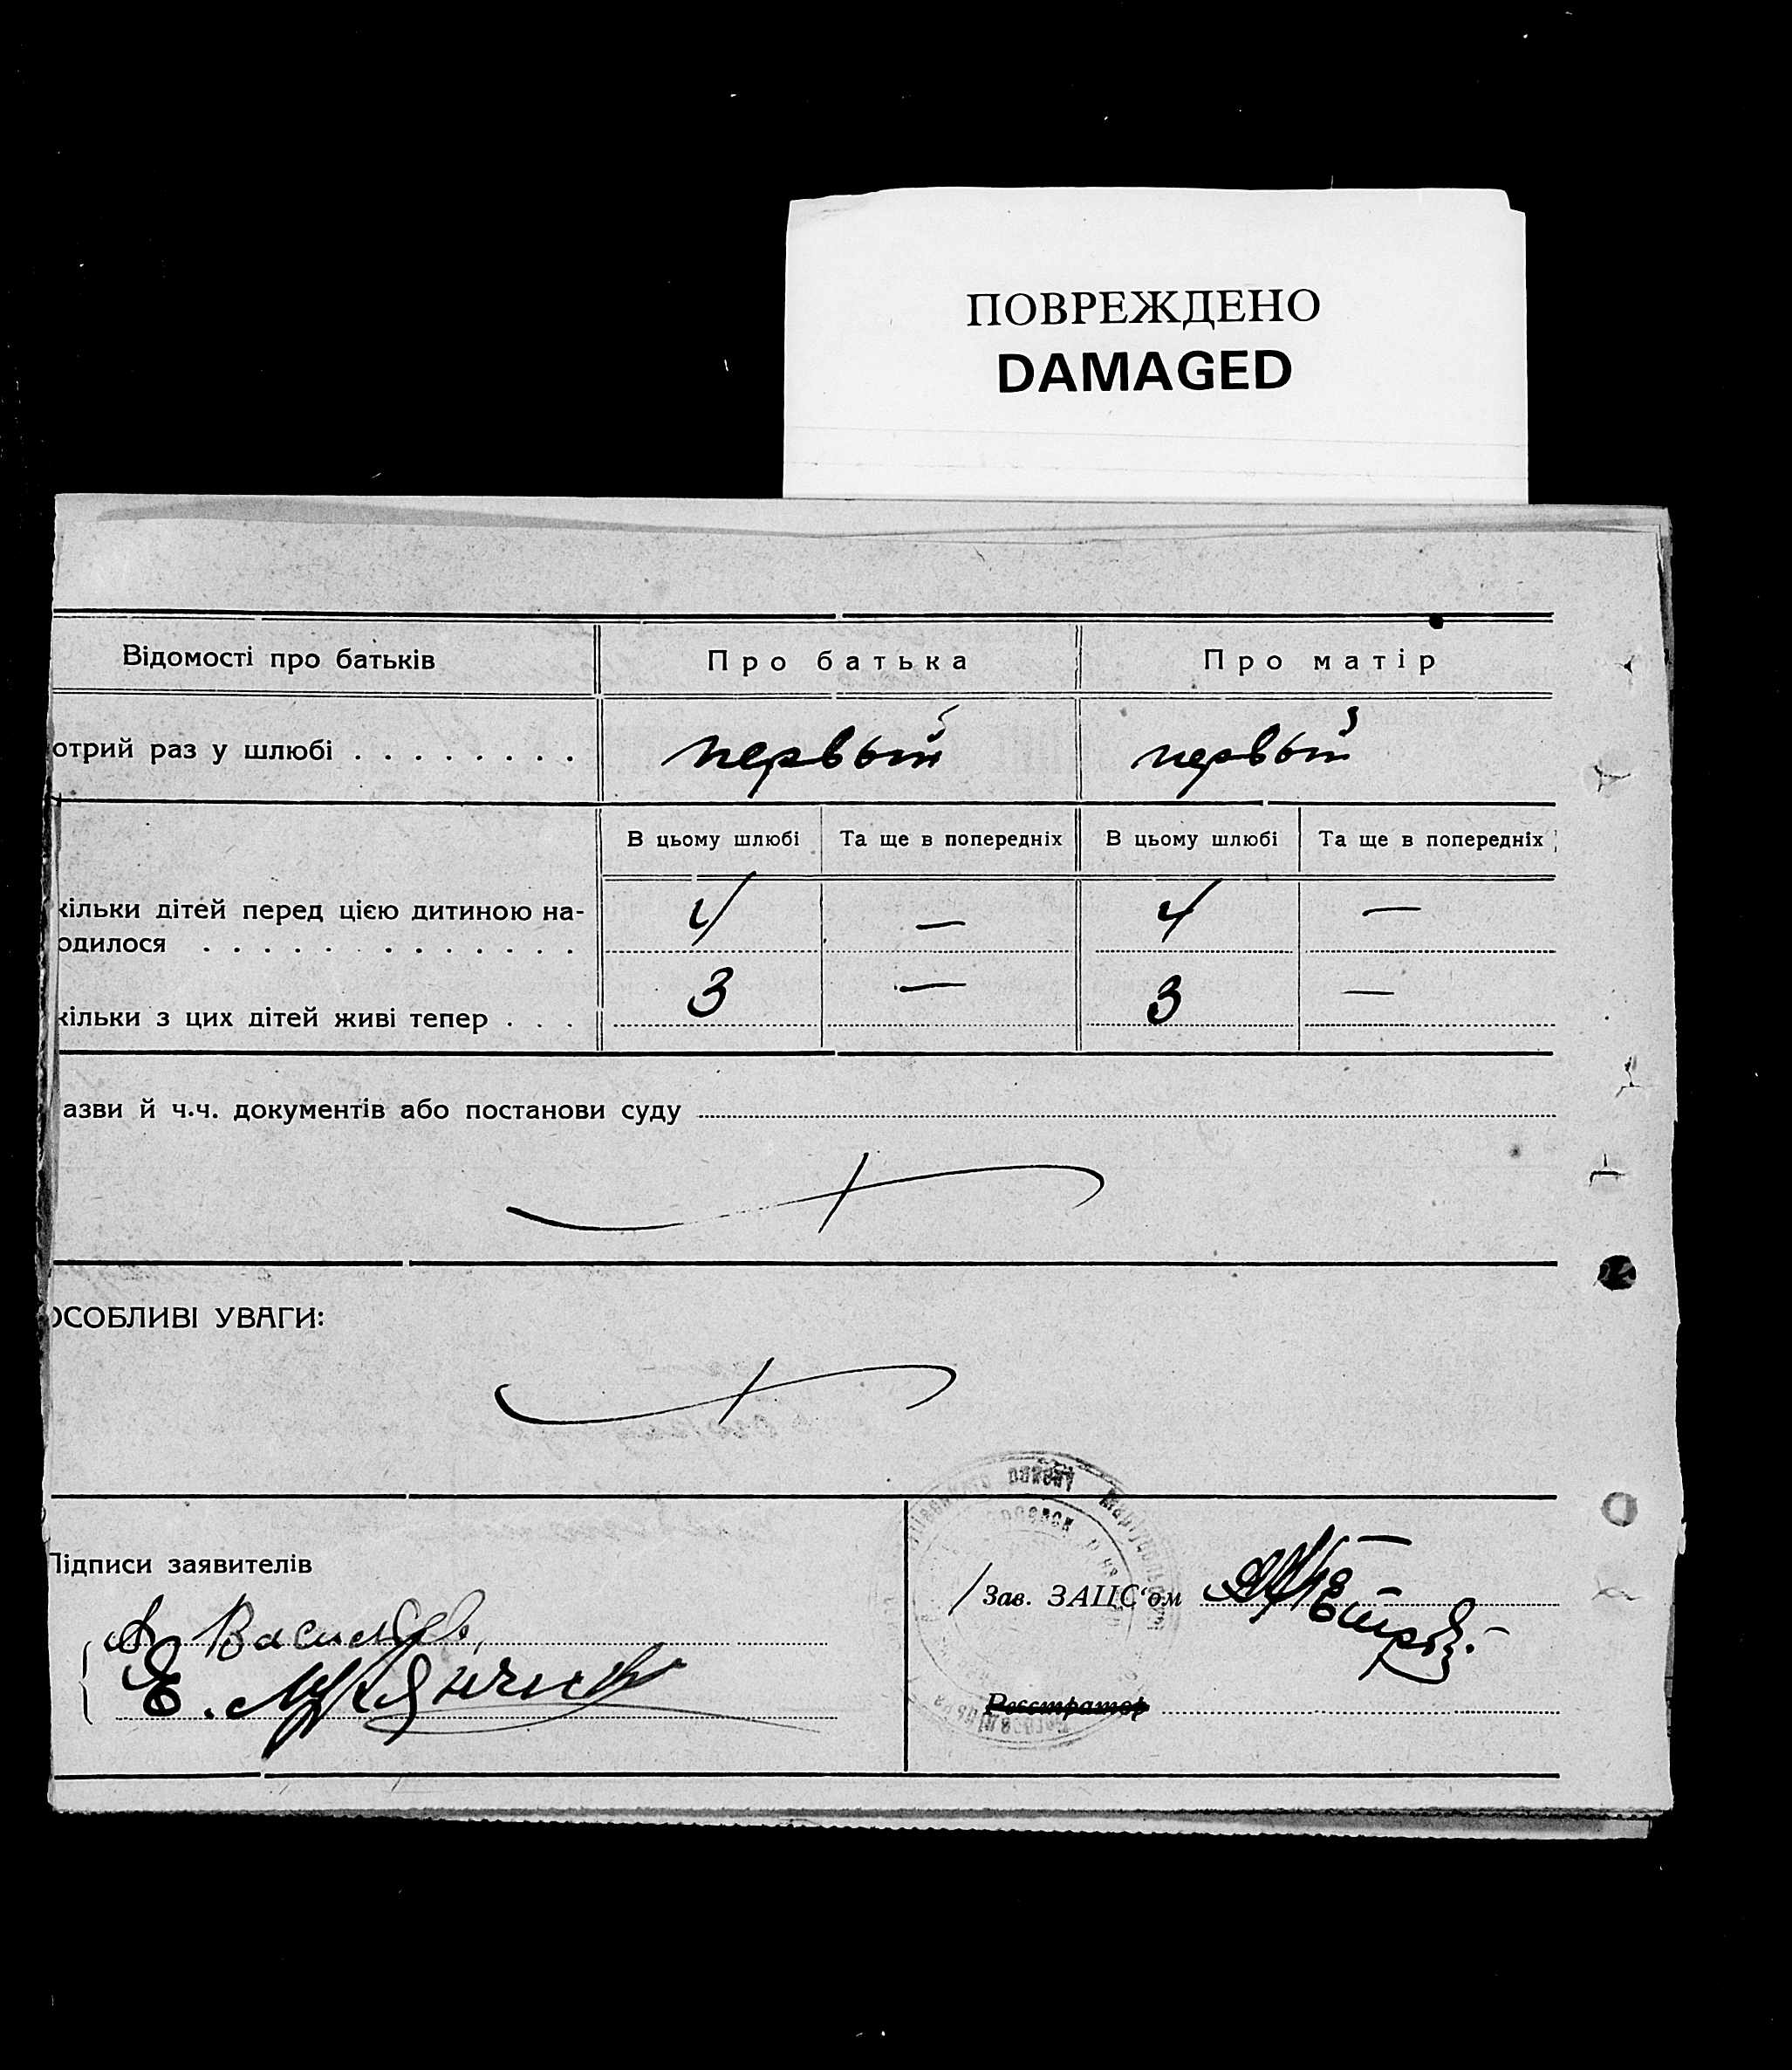 ПОВРЕЖДЕНО
DAMAGED
Відомості про батьків Про батька Про матір
отрий раз у шлюбі . . . . . . . . первый первый
В цьому шлюбі Та ще в попередніх В цьому шлюбі Та ще в попередніх
кільки дітей перед цією дитиною на- 4 — 4 —
одилося . . . . . . . . . . . . .
кільки з цих дітей живі тепер . . . 3 — 3 —
азви й ч.ч. документів або постанови суду
ОСОБЛИВІ УВАГИ:
Підписи заявителів
Зав. ЗАЦС‘ом
Реєстратор